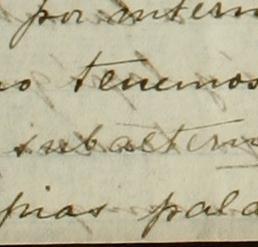 por intern
no tenemos
subaltern
pias pala